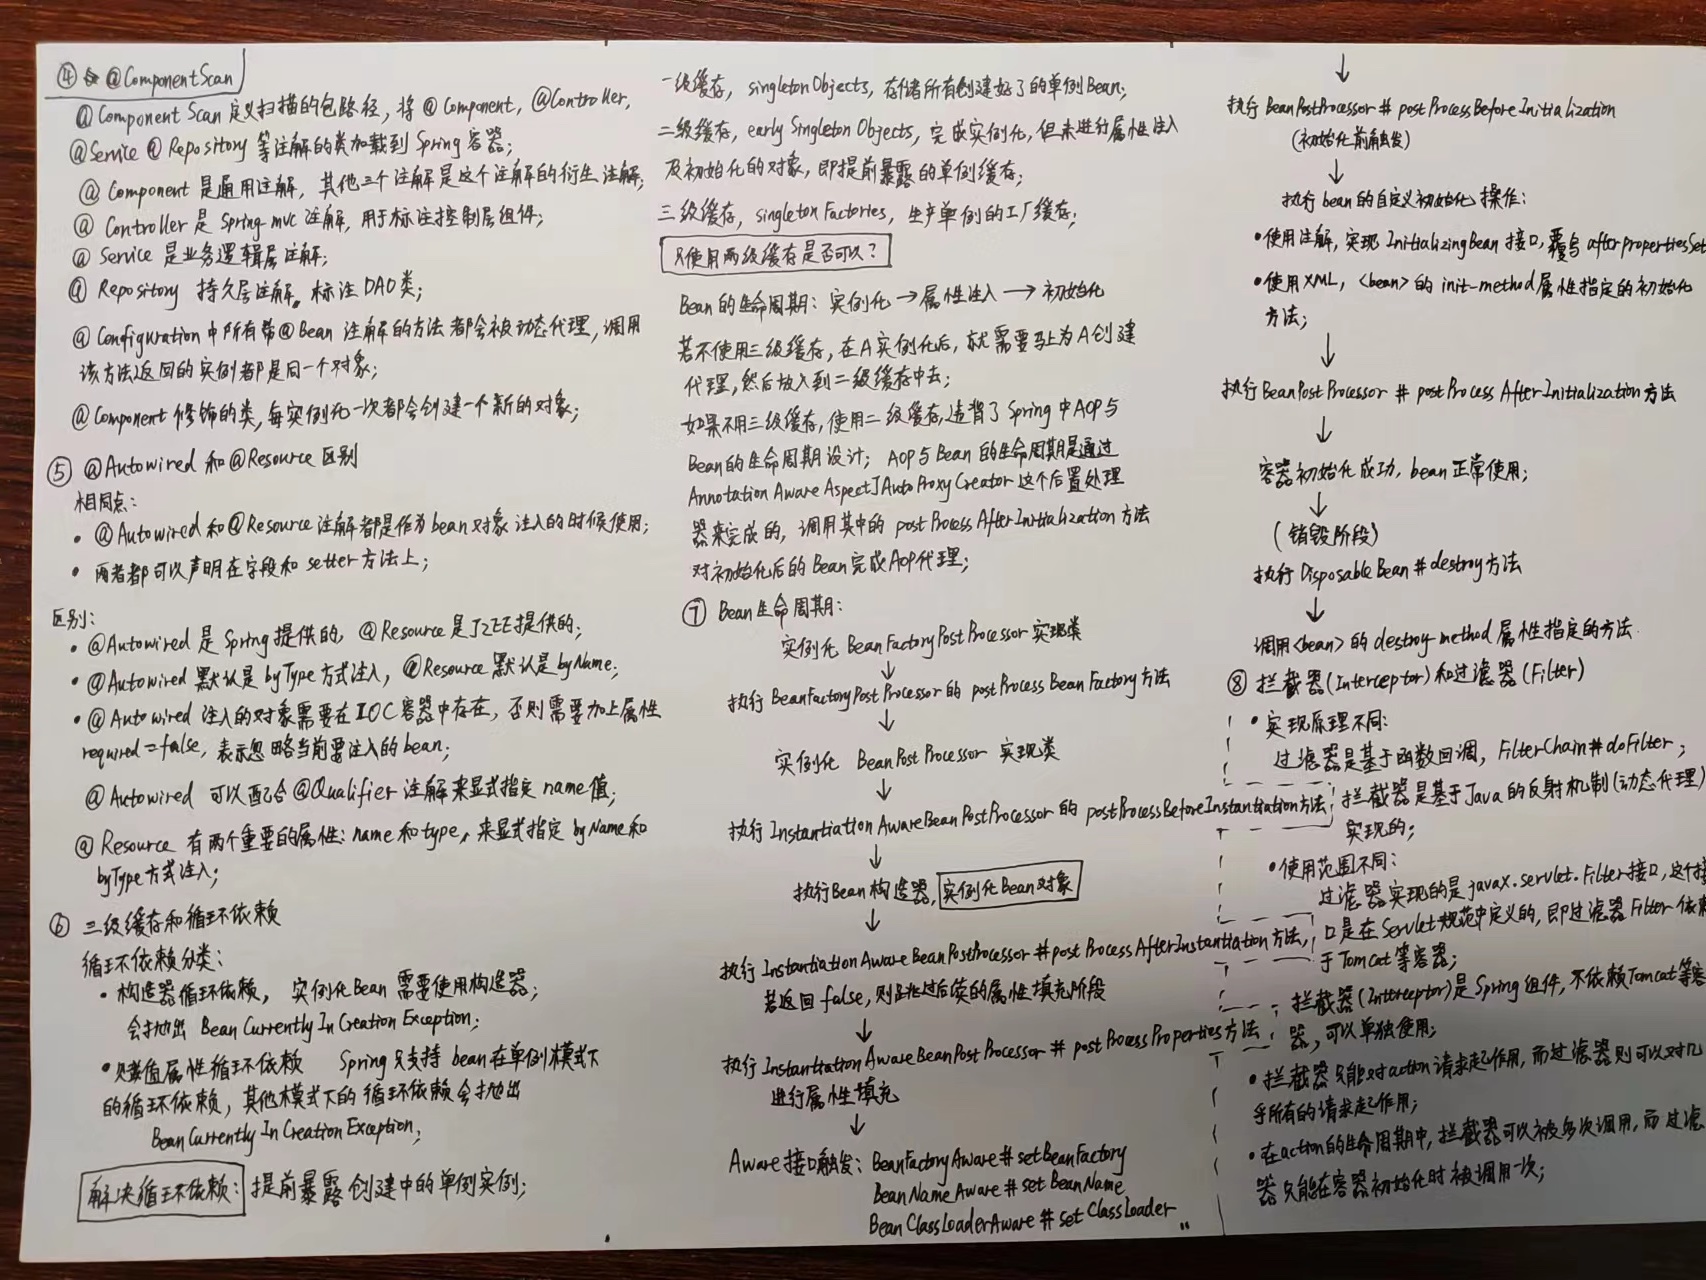 ④ @ComponentScan
@Component Scan 定义扫描的包路径，将 @Component，@Controller，
@Service @Repository 等注解的类加载到 Spring 容器；
@ Component 是通用注解，其他三个注解是这个注解的衍生注解；
@ Controller 是 Spring mvc 注解，用于标注控制层组件；
@ Service 是业务逻辑层注解；
@ Repository 持久层注解。标注 DAO 类；
@ Configuration 中所有带 @Bean 注解的方法都会被动态代理，调用
该方法返回的实例都是同一个对象；
@Component 修饰的类，每实例化一次都会创建一个新的对象；
⑤ @Autowired 和 @Resource 区别
相同点：
• @Autowired 和 @Resource 注解都是作为 bean 对象注入的时候使用；
• 两者都可以声明在字段和 setter 方法上；
区别：
• @Autowired 是 Spring 提供的，@Resource 是 J2EE 提供的；
• @Autowired 默认是 byType 方式注入，@Resource 默认是 byName；
• @Autowired 注入的对象需要在 IOC 容器中存在，否则需要加上属性
required = false，表示忽略当前要注入的 bean；
@Autowired 可以配合 @Qualifier 注解来显式指定 name 值；
@ Resource 有两个重要的属性：name 和 type，来显式指定 byName 和
byType 方式注入；
⑥ 三级缓存和循环依赖
循环依赖分类：
• 构造器循环依赖， 实例化 Bean 需要使用构造器；
会抛出 Bean Currently In Creation Exception；
• 赋值属性循环依赖 Spring 只支持 bean 在单例模式下
的循环依赖，其他模式下的循环依赖会抛出
Bean Currently In Creation Exception；
解决循环依赖： 提前暴露创建中的单例实例；
一级缓存，singletonObjects，存储所有创建好了的单例Bean；
二级缓存，early Singleton Objects，完成实例化，但未进行属性注入
及初始化的对象，即提前暴露的单例缓存；
三级缓存，singleton Factories，生产单例的工厂缓存；
只使用两级缓存是否可以？
Bean 的生命周期：实例化 → 属性注入 → 初始化
若不使用三级缓存，在A实例化后，就需要马上为A创建
代理，然后放入到二级缓存中去；
如果不用三级缓存，使用二级缓存，违背了 Spring 中 AOP 与
Bean 的生命周期设计；AOP 与 Bean 的生命周期是通过
Annotation Aware AspectJ Auto Proxy Creator 这个后置处理
器来完成的，调用其中的 post Process After Initialization 方法
对初始化后的 Bean 完成 AOP 代理；
⑦ Bean 生命周期：
实例化 BeanFactoryPostProcessor 实现类
↓
执行 BeanFactoryPostProcessor 的 postProcess BeanFactory 方法
↓
实例化 BeanPostProcessor 实现类
↓
执行 Instantiation AwareBean PostProcessor 的 postProcessBeforeInstantiation方法；
↓
执行Bean构造器，实例化Bean对象
↓
执行 Instantiation Aware BeanPostProcessor # post Process AfterInstantiation 方法，
若返回 false，则跳过后续的属性填充阶段
↓
执行 InstantiationAwareBeanPostProcessor # postProcessProperties 方法
进行属性填充
↓
Aware 接口触发：BeanFactoryAware # setBeanFactory
BeanNameAware # set BeanName
Bean ClassLoaderAware # set ClassLoader
↓
执行 BeanPostProcessor # postProcessBeforeInitialization
（初始化前触发）
↓
执行 bean 的自定义初始化操作：
• 使用注解，实现 InitializingBean 接口，覆写 afterpropertiesSet
• 使用 XML，<bean> 的 init-method 属性指定的初始化
方法；
↓
执行 BeanPostProcessor # postProcess AfterInitialization 方法
↓
容器初始化成功，bean 正常使用；
↓
（销毁阶段）
执行 DisposableBean # destroy 方法
↓
调用 <bean> 的 destroy-method 属性指定的方法
⑧ 拦截器（Interceptor）和过滤器（Filter）
• 实现原理不同：
过滤器是基于函数回调，FilterChain # doFilter；
拦截器是基于 Java 的反射机制（动态代理）
实现的；
• 使用范围不同：
过滤器实现的是 javax.servlet.Filter 接口，这个接
口是在 Servlet 规范中定义的，即过滤器 Filter 依赖
于 Tomcat 等容器；
拦截器（Interceptor）是 Spring 组件，不依赖 Tomcat 等容
器，可以单独使用；
• 拦截器只能对 action 请求起作用，而过滤器则可以对几
乎所有的请求起作用；
• 在 action 的生命周期中，拦截器可以被多次调用，而过滤
器只能在容器初始化时被调用一次；